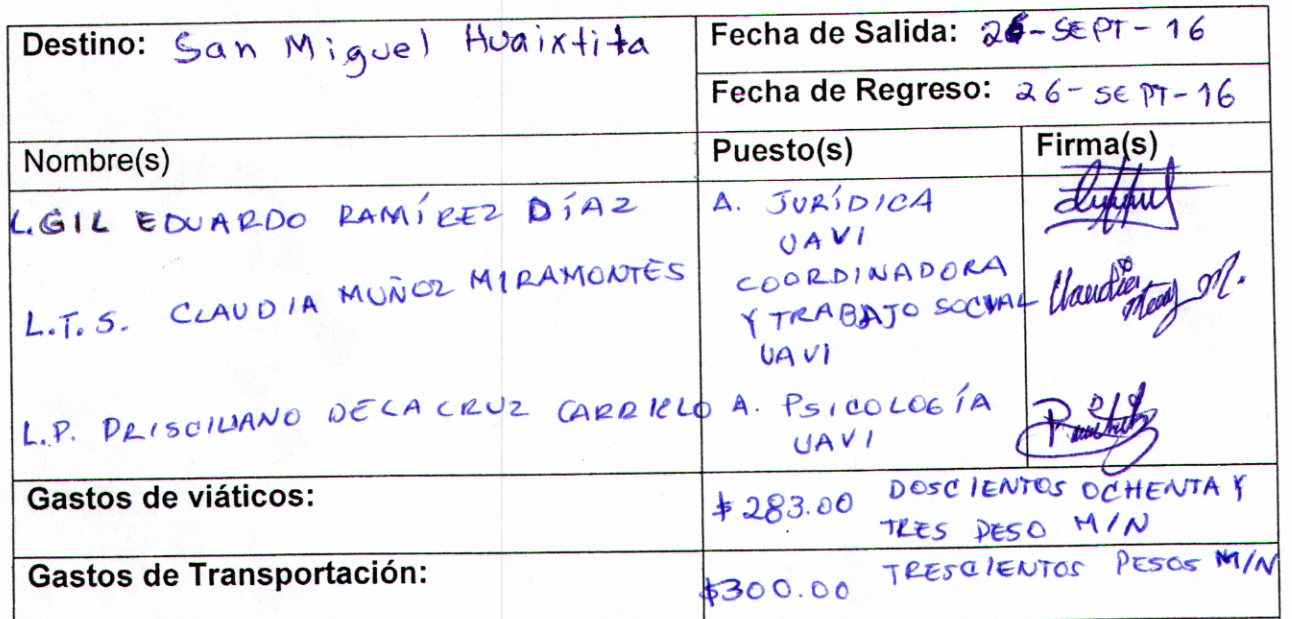 Destino: San Miguel Huaixtita
Fecha de Salida: 26-SEPT-16
Fecha de Regreso: 26-SEPT-16
Nombre(s) Puesto(s) Firma(s)
L.GIL EDUARDO RAMÍREZ DÍAZ A. JURÍDICA
UAVI
L.T.S. CLAUDIA MUÑOZ MIRAMONTES COORDINADORA
Y TRABAJO SOCIAL Claudia M.
UAVI
L.P. PRISCILIANO DE LA CRUZ CARRILLO A. PSICOLOGÍA
UAVI
Gastos de viáticos: $283.00 DOSCIENTOS OCHENTA Y
TRES PESO M/N
Gastos de Transportación: $300.00 TRESCIENTOS PESOS M/N